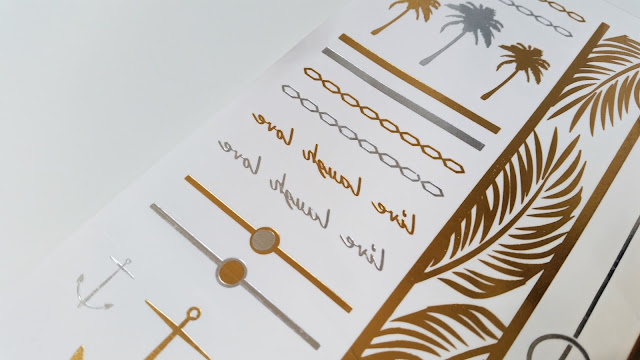 live laugh love
live laugh love